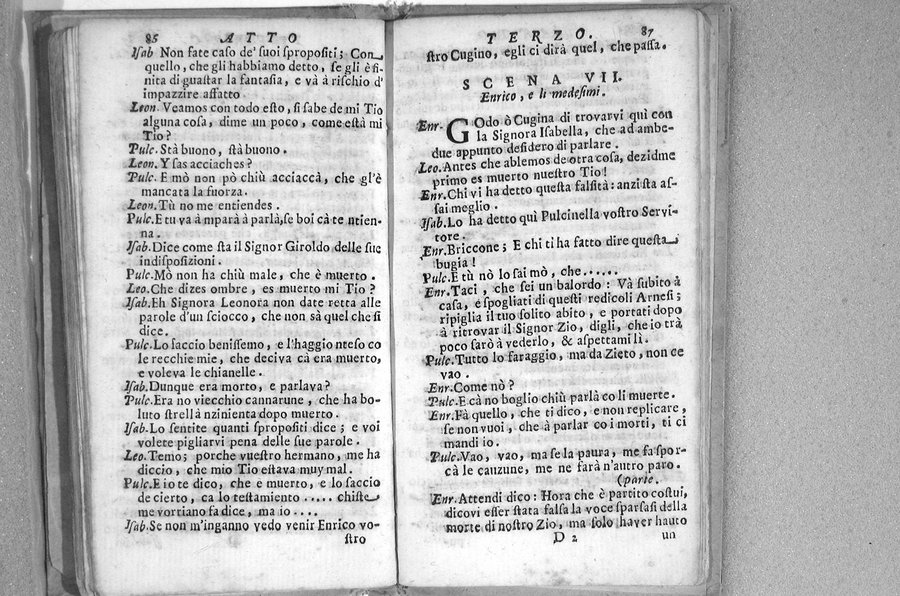 85 ATTO
Isab Non fate caso de' suoi spropositi; Con
quello, che gli habbiamo detto, se gli è fi-
nita di guastar la fantasia, e và à rischio d'
impazzire affatto
Leon. Veamos con todo esto, si sabe de mi Tio
alguna cosa, dime un poco, como està mi
Tio?
Pulc. Stà buono, stà buono.
Leon. Y sas acciaches?
Pulc. E mò non pò chiù acciaccà, che gl'è
mancata la fuorza.
Leon. Tù no me entiendes.
Pulc. E tu và ampàrà à parlà, se boi cà te ntien-
na.
Isab. Dice come sta il Signor Giroldo delle sue
indisposizioni.
Pulc. Mò non ha chiù male, che è muerto.
Leo. Che dizes ombre, es muerto mi Tio?
Isab. Eh Signora Leonora non date retta alle
parole d'un sciocco, che non sà quel che si
dice.
Pulc. Lo saccio benissemo, e l'haggio nteso co
le recchie mie, che deciva cà era muerto,
e voleva le chianelle.
Isab. Dunque era morto, e parlava?
Pulc. Era no viecchio cannarune, che ha bo-
luto strellà nzinienta dopo muerto.
Isab. Lo sentite quanti spropositi dice; e voi
volete pigliarvi pena delle sue parole.
Leo. Temo; porche vuestro hermano, me ha
diccio, che mio Tio estava muy mal.
Pulc. E io te dico, che è muerto, e lo saccio
de cierto, ca lo testamiento ..... chiste
me vortiano fa dice, ma io ....
Isab. Se non m'inganno vedo venir Enrico vo-
stro
TERZO. 87
stro Cugino, egli ci dirà quel, che passa.
SCENA VII.
Enrico, e li medesimi.
Enr. GOdo ò Cugina di trovarvi quì con
la Signora Isabella, che ad ambe-
due appunto desidero di parlare.
Leo. Antes che ablemos de otra cosa, dezidme
primo es muerto nuestro Tio!
Enr. Chi vi ha detto questa falsità: anzi sta as-
sai meglio.
Isab. Lo ha detto quì Pulcinella vostro Servi-
tore.
Enr. Briccone; E chi ti ha fatto dire questa
bugia!
Pulc. E tù nò lo sai mò, che......
Enr. Taci, che sei un balordo: Và subito à
casa, e spogliati di questi redicoli Arnesi;
ripiglia il tuo solito abito, e portati dopo
à ritrovar il Signor Zio, digli, che io trà
poco sarò à vederlo, & aspettami lì.
Pulc. Tutto lo faraggio, ma da Zieto, non ce
vao.
Enr. Come nò?
Pulc. E cà no boglio chiù parlà co li muerte.
Enr. Fà quello, che ti dico, e non replicare,
se non vuoi, che à parlar co i morti, ti ci
mandi io.
Pulc. Vao, vao, ma se la paura, me fa spor-
cà le cauzune, me ne farà n'autro paro.
(parte.
Enr. Attendi dico: Hora che è partito costui,
dicovi esser stata falsa la voce sparsasi della
morte di nostro Zio, ma solo haver hauto
D 2 un